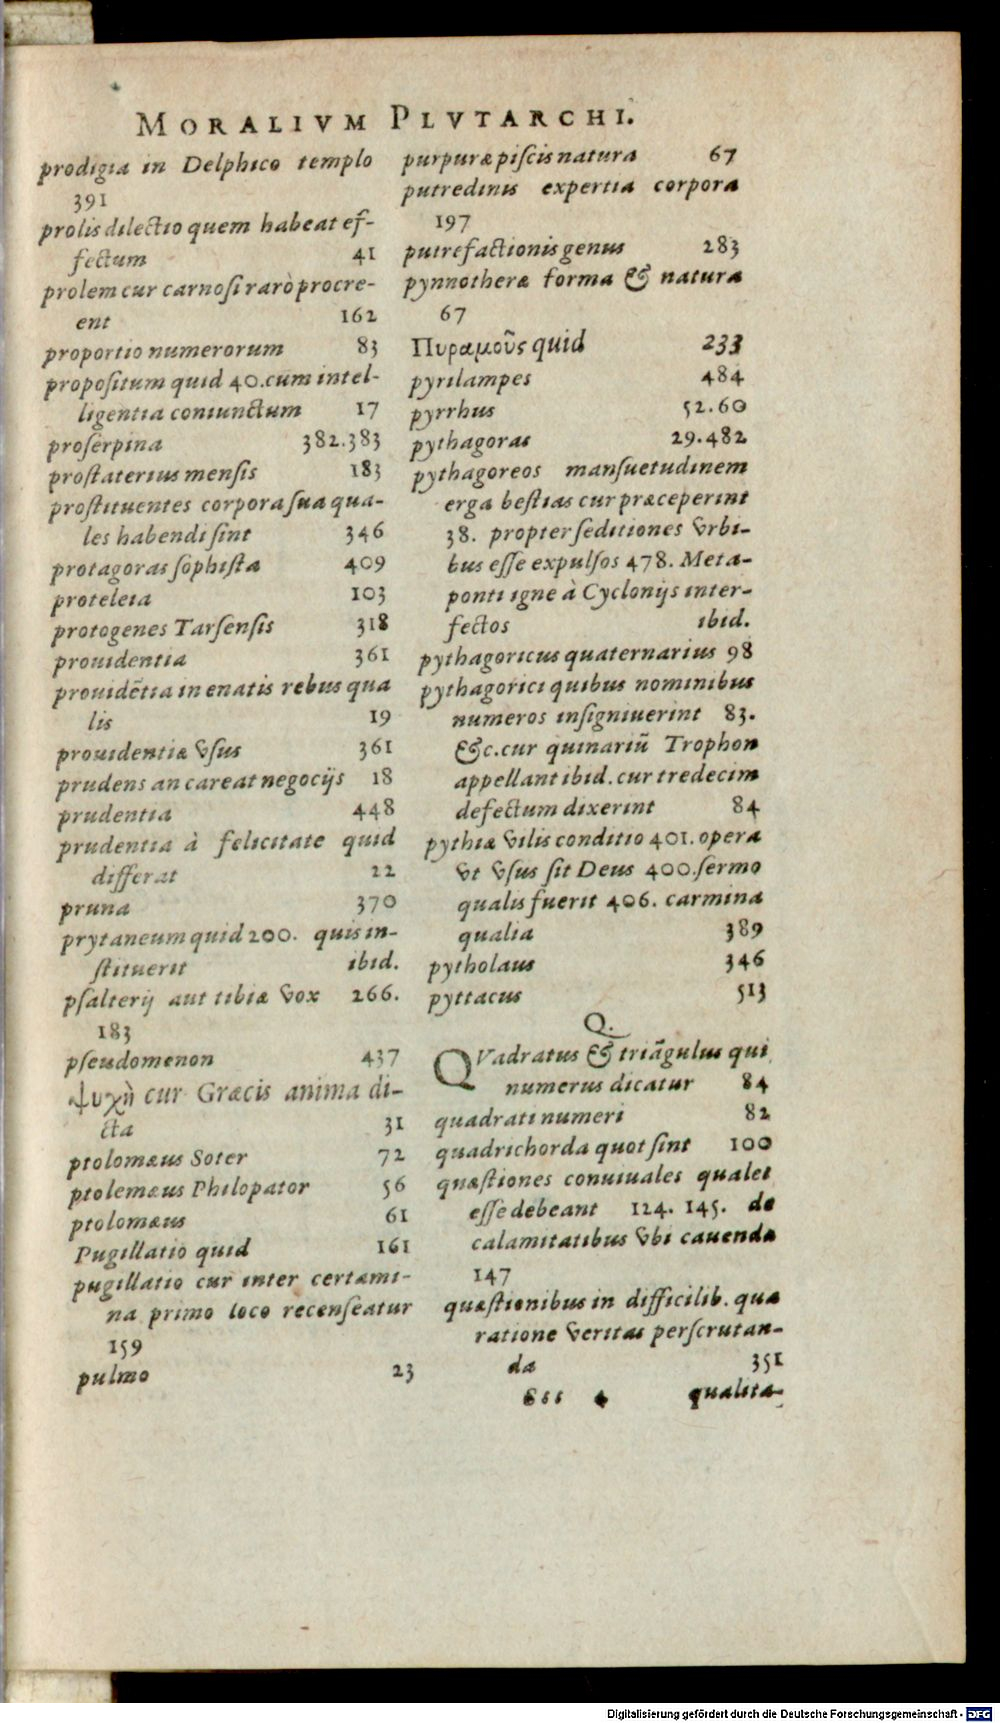 MORALIVM PLVTARCHI.
prodigia in Delphico templo
391
prolis dilectio quem habeat ef-
fectum 41
prolem cur carnosi rarò procre-
ent 162
proportio numerorum 83
propositum quid 40. cum intel-
ligentia coniunctum 17
proserpina 382.383
prostaterius mensis 183
prostituentes corpora sua qua-
les habendi sint 346
protagoras sophista 409
proteleia 103
protogenes Tarsensis 318
prouidentia 361
prouidẽtia in enatis rebus qua
lis 19
prouidentiæ vsus 361
prudens an careat negocijs 18
prudentia 448
prudentia à felicitate quid
differat 22
pruna 370
prytaneum quid 200. quis in-
stituerit ibid.
psalterij aut tibiæ vox 266.
183
pseudomenon 437
ψυχὴ cur Græcis anima di-
cta 31
ptolomæus Soter 72
ptolemæus Philopator 56
ptolomæus 61
Pugillatio quid 161
pugillatio cur inter certami-
na primo loco recenseatur
159
pulmo 23
purpuræ piscis natura 67
putredinis expertia corpora
197
putrefactionis genus 283
pynnotheræ forma & natura
67
Πυραμοῦς quid 233
pyrilampes 484
pyrrhus 52.60
pythagoras 29.482
pythagoreos mansuetudinem
erga bestias cur præceperint
38. propter seditiones vrbi-
bus esse expulsos 478. Meta-
ponti igne à Cyclonijs inter-
fectos ibid.
pythagoricus quaternarius 98
pythagorici quibus nominibus
numeros insigniuerint 83.
&c. cur quinariũ Trophon
appellant ibid. cur tredecim
defectum dixerint 84
pythiæ vilis conditio 401. opera
vt vsus sit Deus 400. sermo
qualis fuerit 406. carmina
qualia 389
pytholaus 346
pyttacus 513
Q.
QVadratus & triãgulus qui
numerus dicatur 84
quadrati numeri 82
quadrichorda quot sint 100
quæstiones conuiuales quales
esse debeant 124. 145. de
calamitatibus vbi cauenda
147
quæstionibus in difficilib. qua
ratione veritas perscrutan-
da 351
sss qualita-
Digitalisierung gefördert durch die Deutsche Forschungsgemeinschaft - DFG